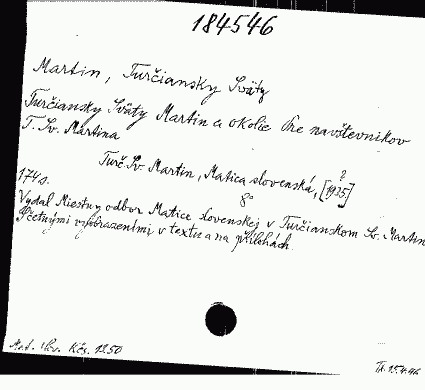 184546
Martin, Turčiansky Svätý
Turčiansky Svätý Martin a okolie Pre navštevníkov
T. Sv. Martina
Turč. Sv. Martin, Matica slovenská, [1935]
?
8°
174 s.
Vydal Miestny odbor Matice slovenskej v Turčianskom Sv. Martine
S četnými vyobrazeniami v texte a na prílohách.
Kčs. 12.50